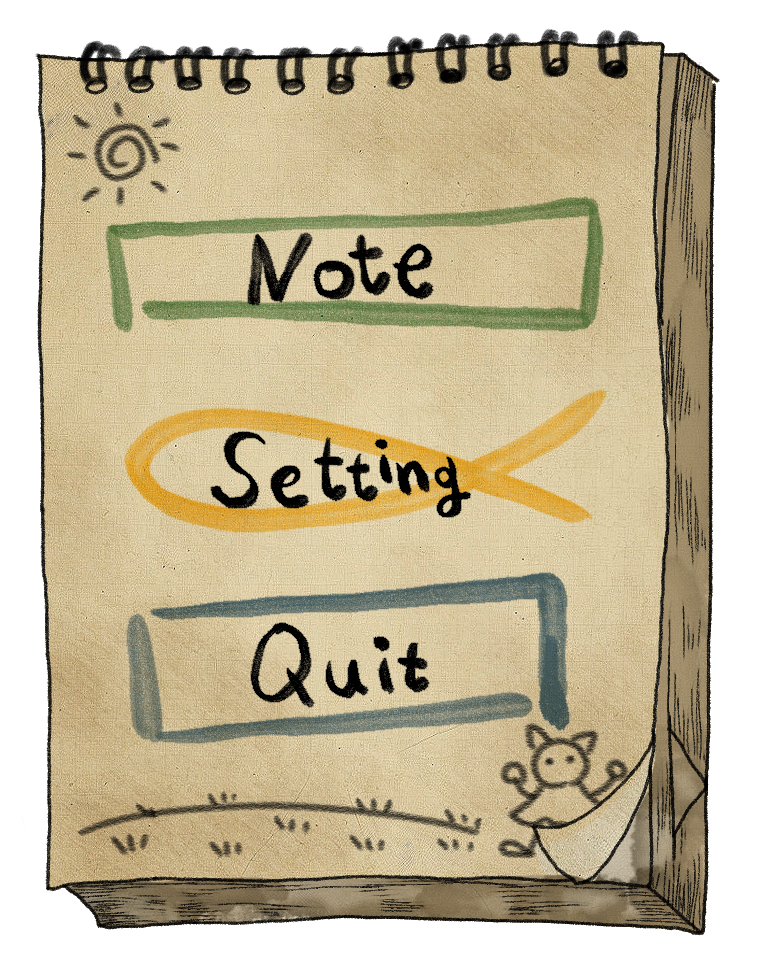 Note
Setting
Quit